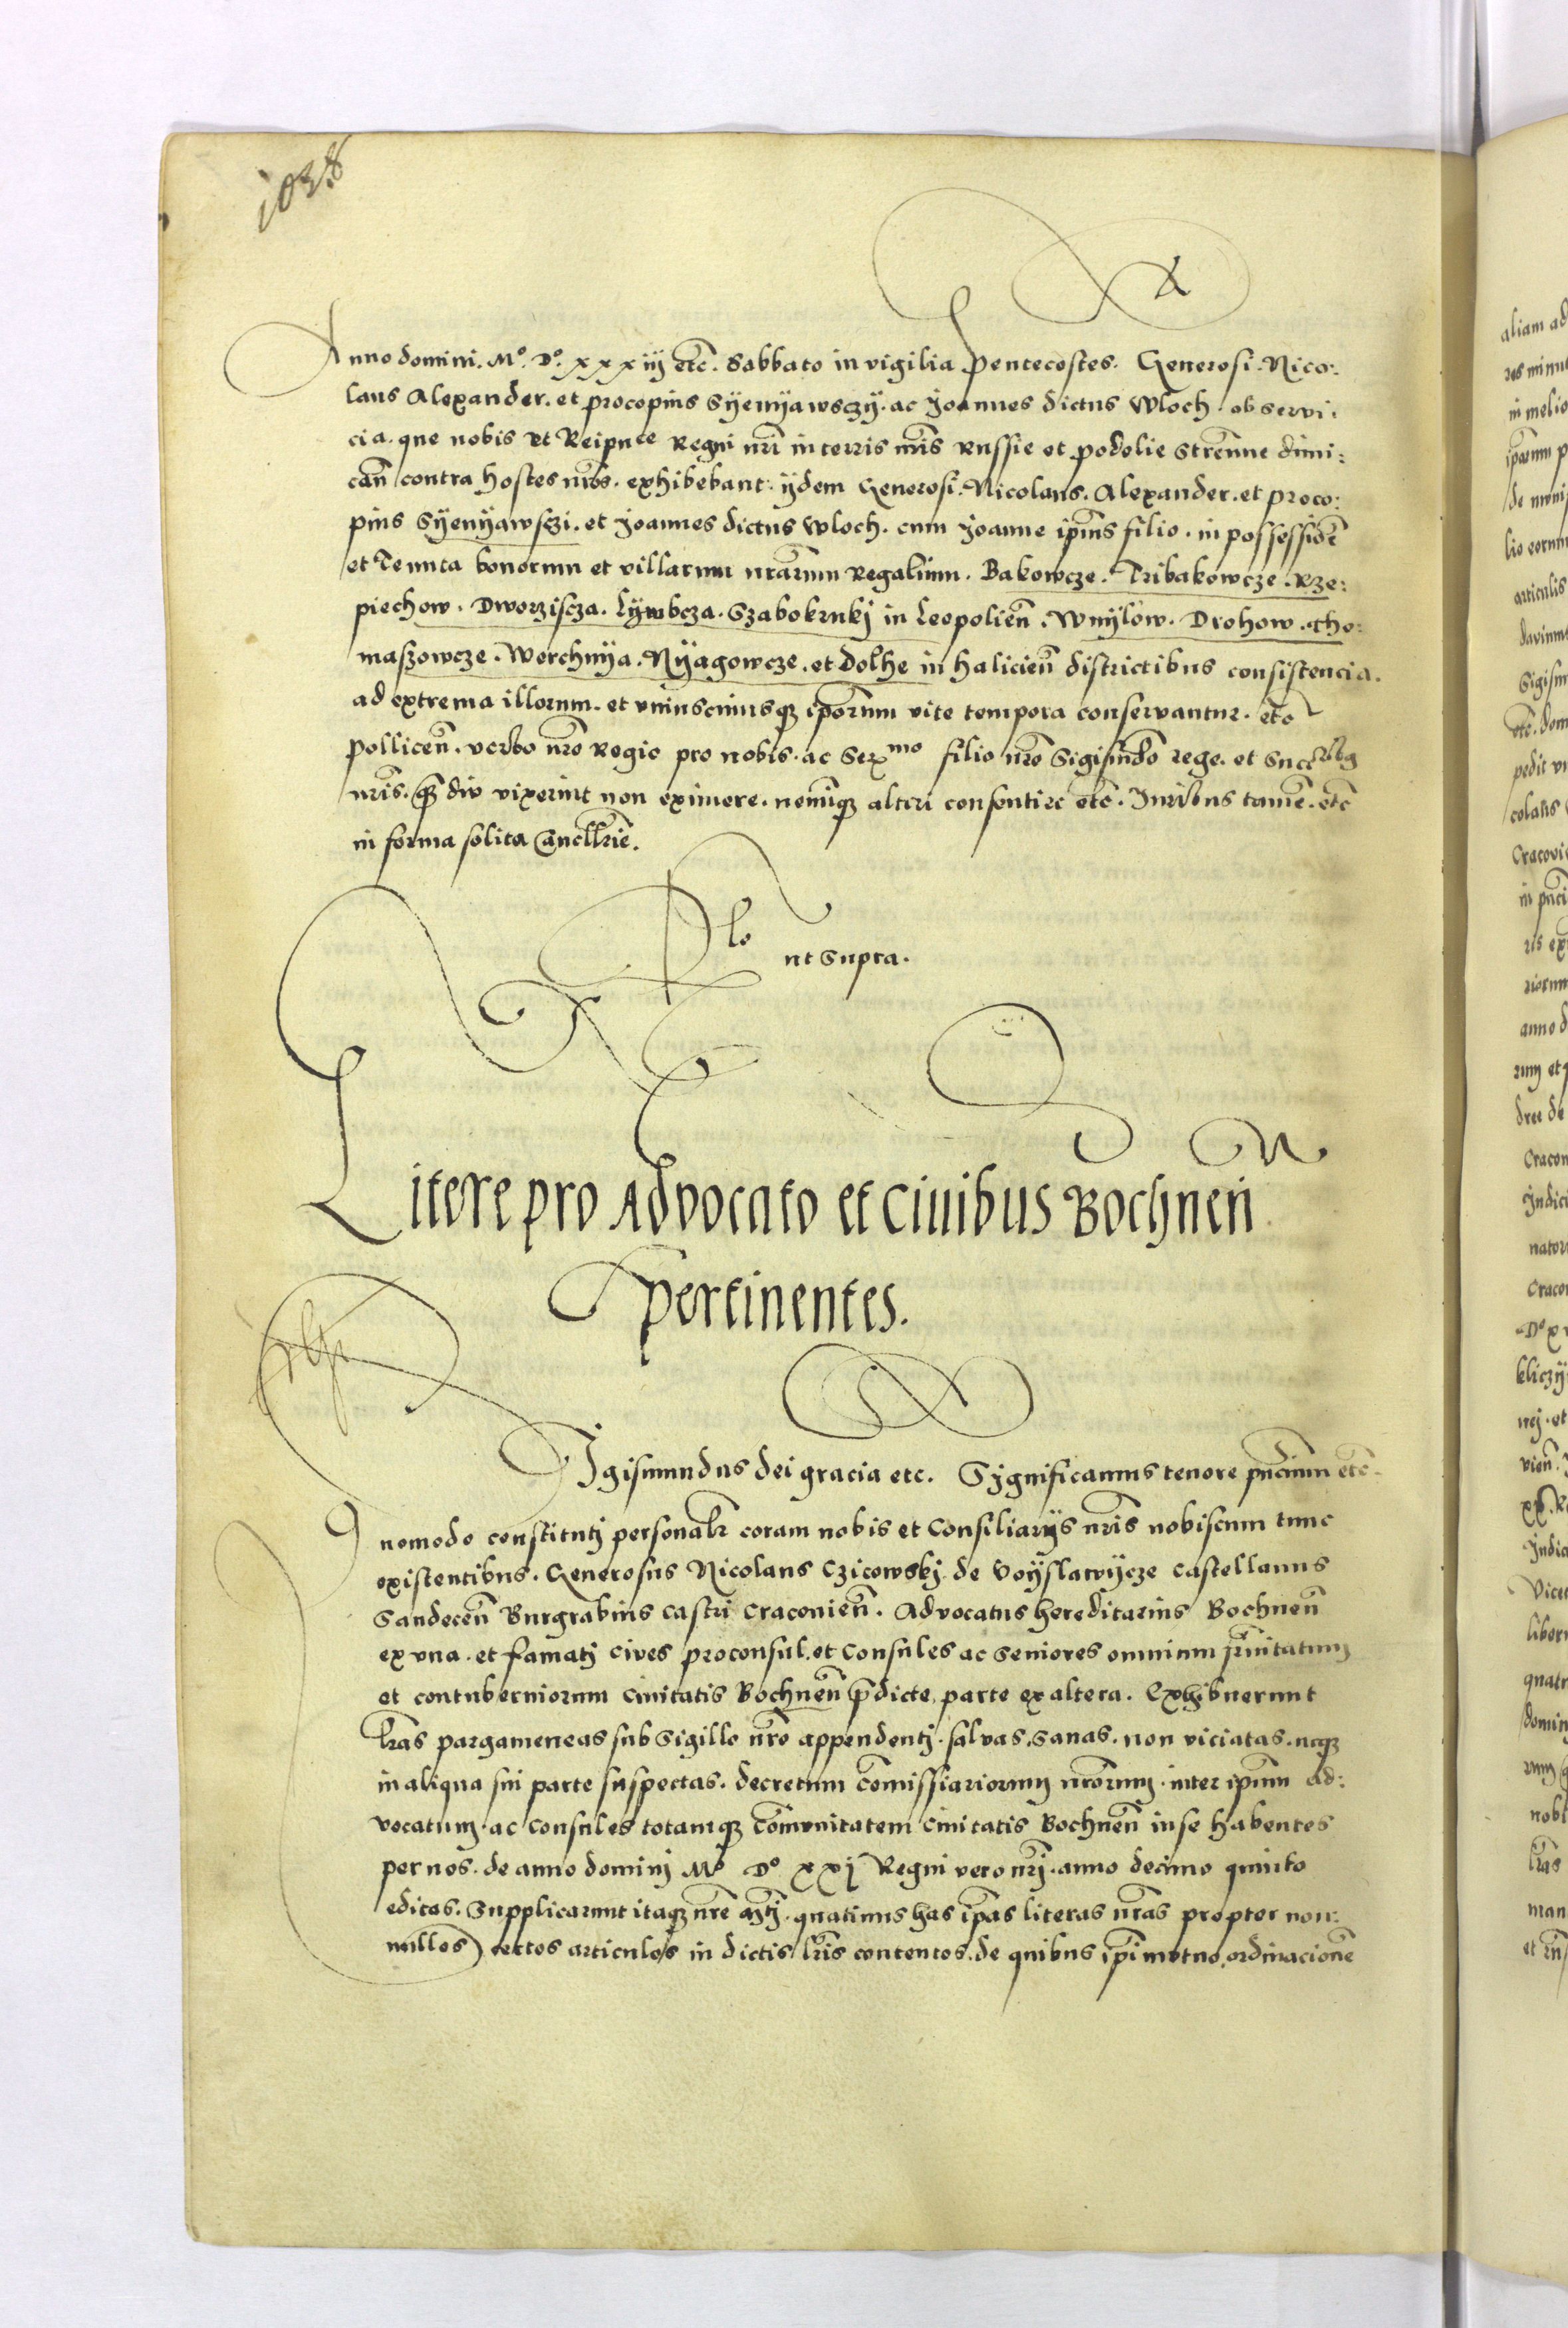 1038
Anno domini. Mº. Dº. xxxiij etc̃. Sabbato in vigilia Pentecostes. Generosi. Nico:
laus Alexander. et procopius Syenyawsczy. ac Joannes dictus Wloch. ob servi:
cia. que nobis et Reipuce Regni nri̅ in terris nris̅ Russie et podolie Strenne̅ dimi:
can̅ contra hostes nros̅. exhibebant: ijdem Generosi. Nicolaus. Alexander. et proco:
pius Syenyawsczi. et Joannes dictus Wloch. cum Joanne ip̅ius filio. in possessione̅
et Tenuta bonorum et villarum nrar̅um Regalium. Bakowcze. Tribakowcze. Rze:
piechow. Dworziscza. Lywbcza. Szabokrukj in Leopolien̅. Wnylow. Drohow. Tho:
maszowcze. Werchnya. Nyagowcze. et Dolhe in halicien̅ districtibus consistencia.
ad extrema illorum. et vniuscuiusqʒ ip̅orum vite tempora conservantur. etc
pollicen̅. verbo nro̅ Regio pro nobis. ac Serᵐᵒ filio nro̅ Sigismu̅do rege. et Succrib̅g
nris̅. qʒ diu vixerint non eximere. nemi̅qʒ alteri consentire etc̅. Juribus tame̅. etc̅
in forma solita Cancllrie̅.
Rlo ut supra.
Litere pro Advocato et Civibus Bochnen̅
pertinentes.
Sigismundus dei gracia etc. Significamus tenore pn̅cium etc̅.
Quomodo constitutj personalr̅ coram nobis et Consiliarijs nris̅ nobiscum tunc
existentibus. Generosus Nicolaus Czicowskj de Voyslawycze Castellanus
Sandecen̅ Burgrabius castri Cracovien̅. Advocatus hereditarius Bochnen̅
ex vna. et famatj cives proconsul. et Consules ac Seniores omnium fr̅nitatum
et contuberniorum Civitatis Bochnen̅ p̅dicte, parte ex altera. Exhibuerunt
lr̅as pargameneas sub Sigillo nro̅ appendentj. salvas. sanas. non viciatas. neqʒ
in aliqua sui parte suspectas. decretum Co̅missiariorum nror̅um. inter ip̅um ad:
vocatum. ac Consules totamqʒ Co̅mvnitatem Civitatis Bochnen̅ in se habentes
per nos. de anno dominj Mº Dº xxj Regni vero nrj̅. anno decimo quinto
editas. Supplicarunt itaqʒ nre̅ Mtj̅. quatinus has ip̅as literas nras̅ propter non:
nullos certos articulos in dictis lr̅is contentos. de quibus ip̅i mutuo. ordinacione̅